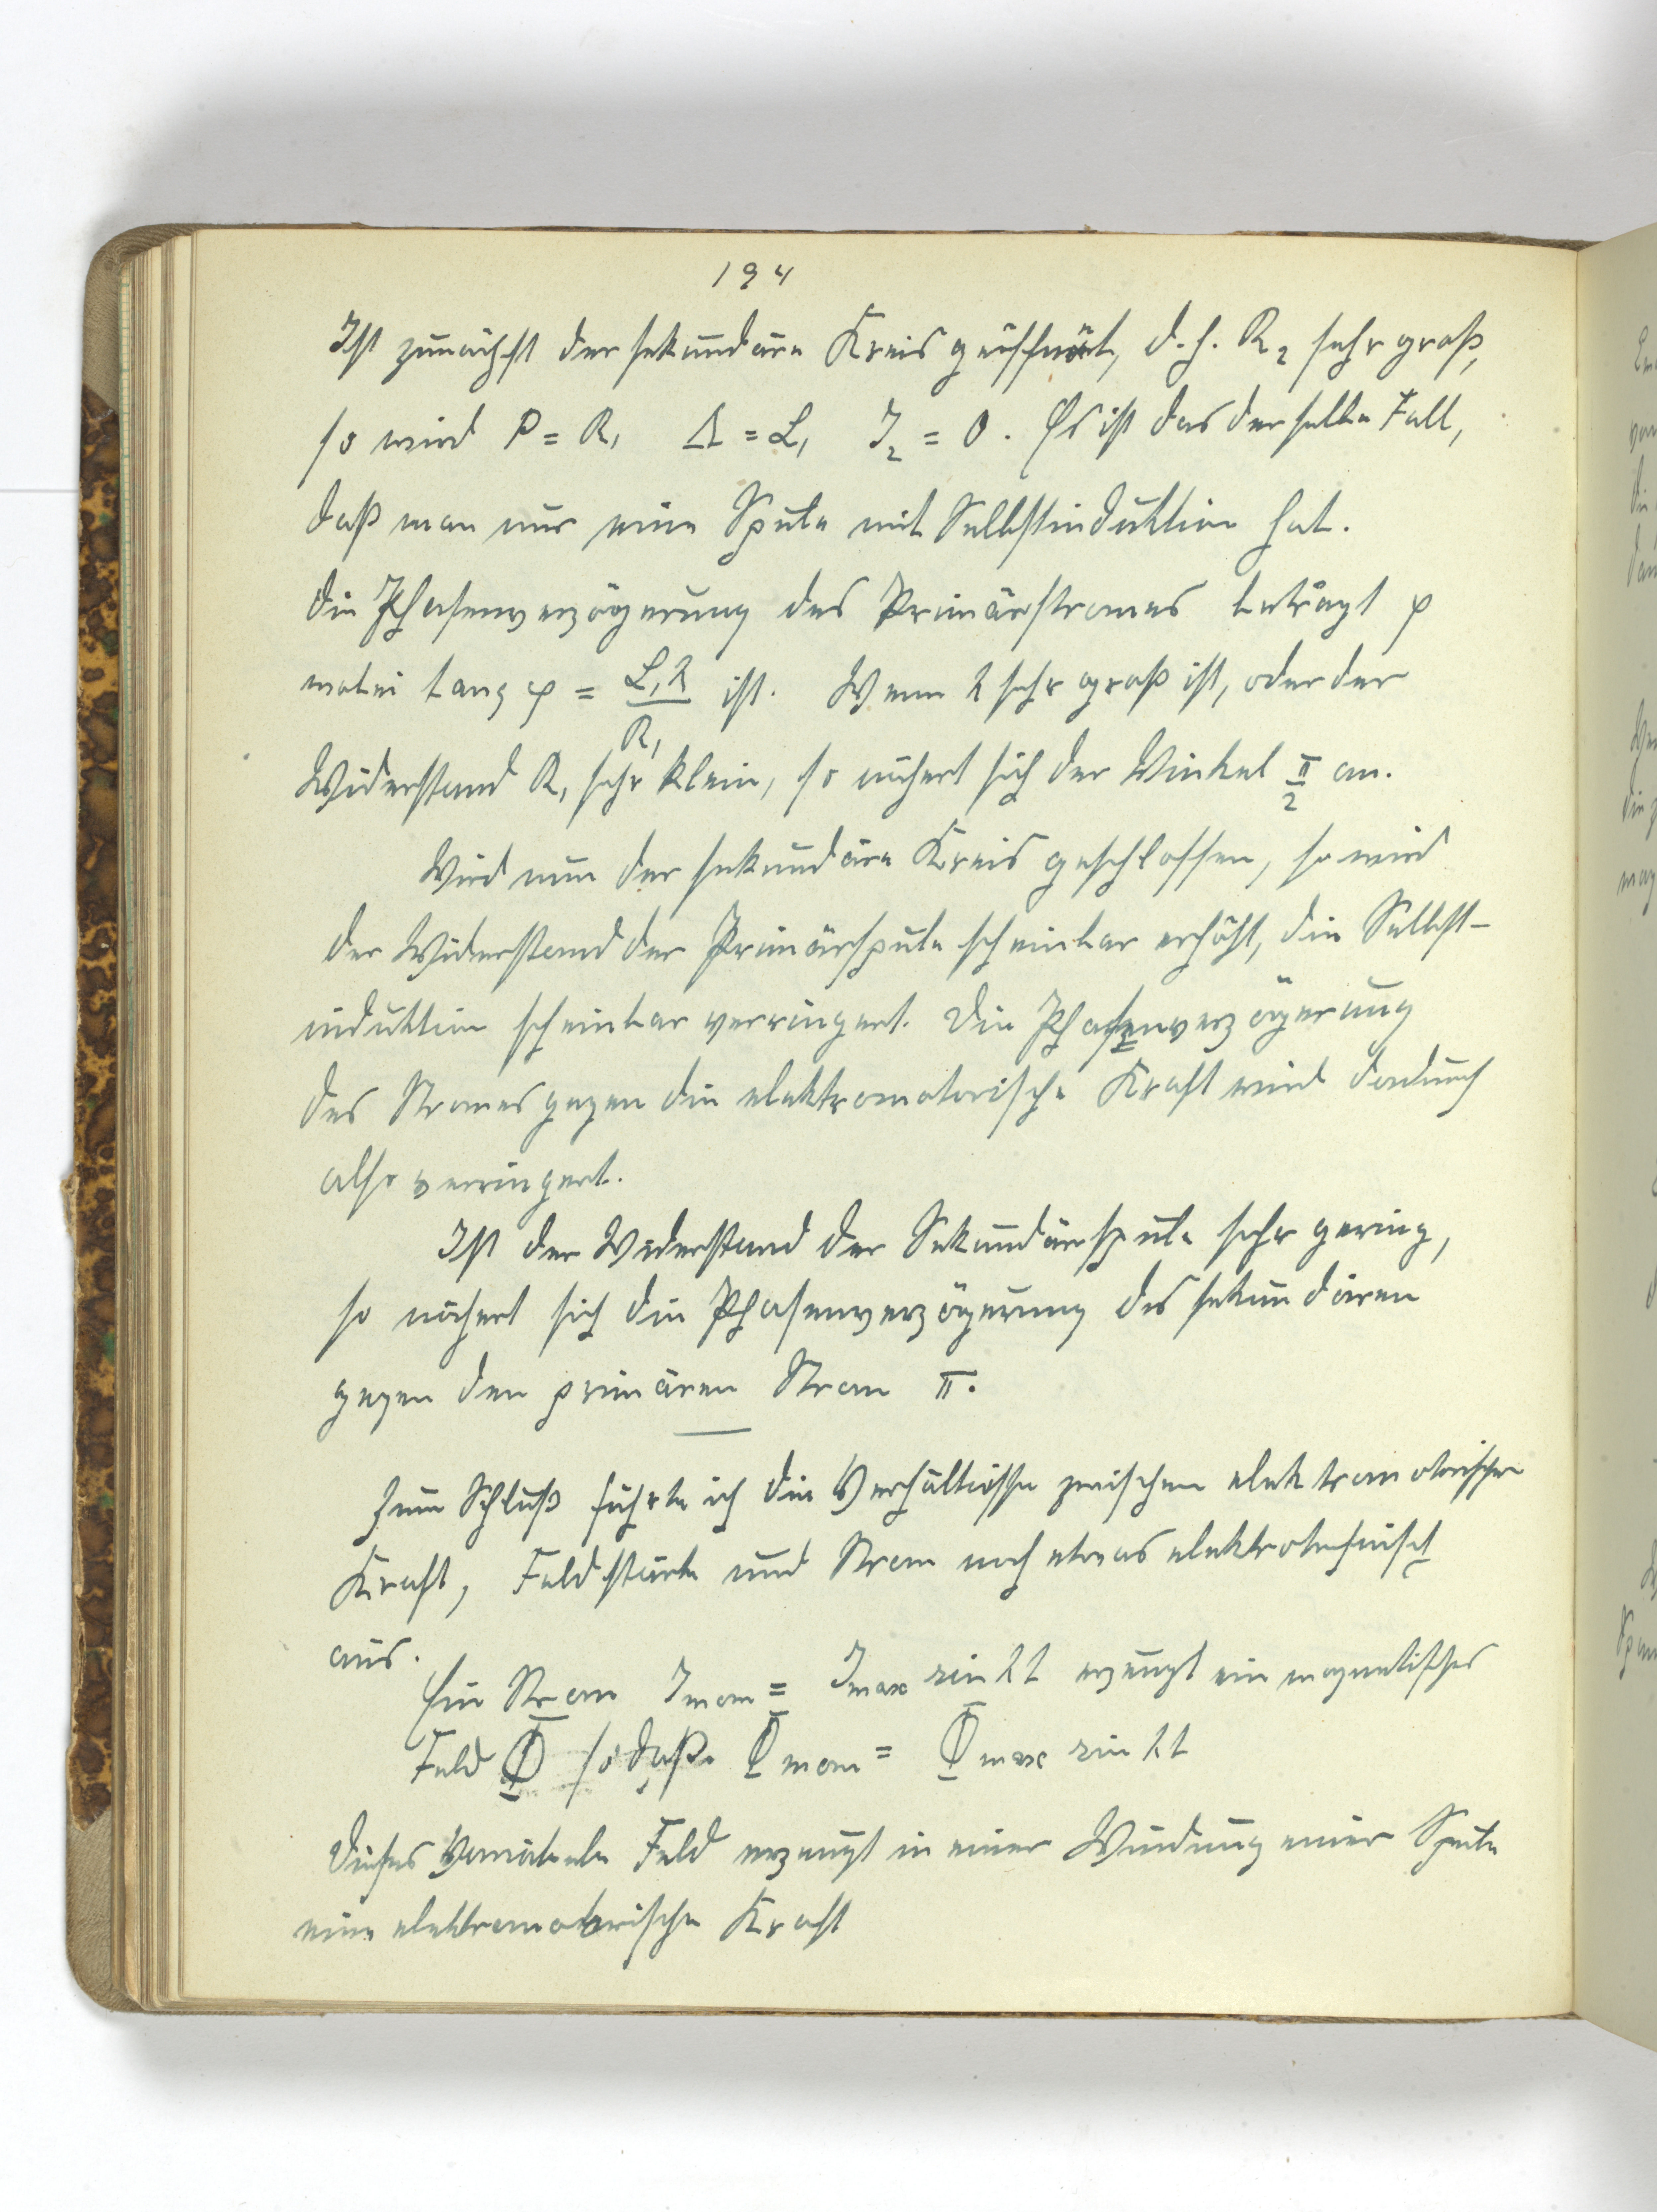 194
Ist zunächst der sekundäre Kreis geöffnet, d. h. R₂ sehr groß,
so wird P = R₁ Λ = L₁ J₂ = 0. Es ist das derselbe Fall,
daß man nur eine Spule mit Selbstinduktion hat.
Die Phasenverzögerung des Primärstromes beträgt φ
wobei tang φ = L₁λ/R₁ ist. Wenn λ sehr groß ist, oder der
Widerstand R₁ sehr klein, so nähert sich der Winkel π/2 an.
Wird nun der sekundäre Kreis geschlossen, so wird
der Widerstand der Primärspule scheinbar erhöht, die Selbst-
induktion scheinbar verringert. Die Phasenverzögerung
des Stromes gegen die elektromotorische Kraft wird dadurch
also verringert.
Ist der Widerstand der Sekundärspule sehr gering,
so nähert sich die Phasenverzögerung des sekundären
gegen den primären Strom π.
Zum Schluß führte ich die Verhältnisse zwischen elektromotorischer
Kraft, Feldstärke und Strom noch etwas elektrotechnisch
aus.
Ein Strom Jmom = Jmax sin λt erzeugt ein magnetisches
Feld Φ so daß Φ mom = Φ max sin λt
Dieses variabele Feld erzeugt in einer Windung einer Spule
eine elektromotorische Kraft